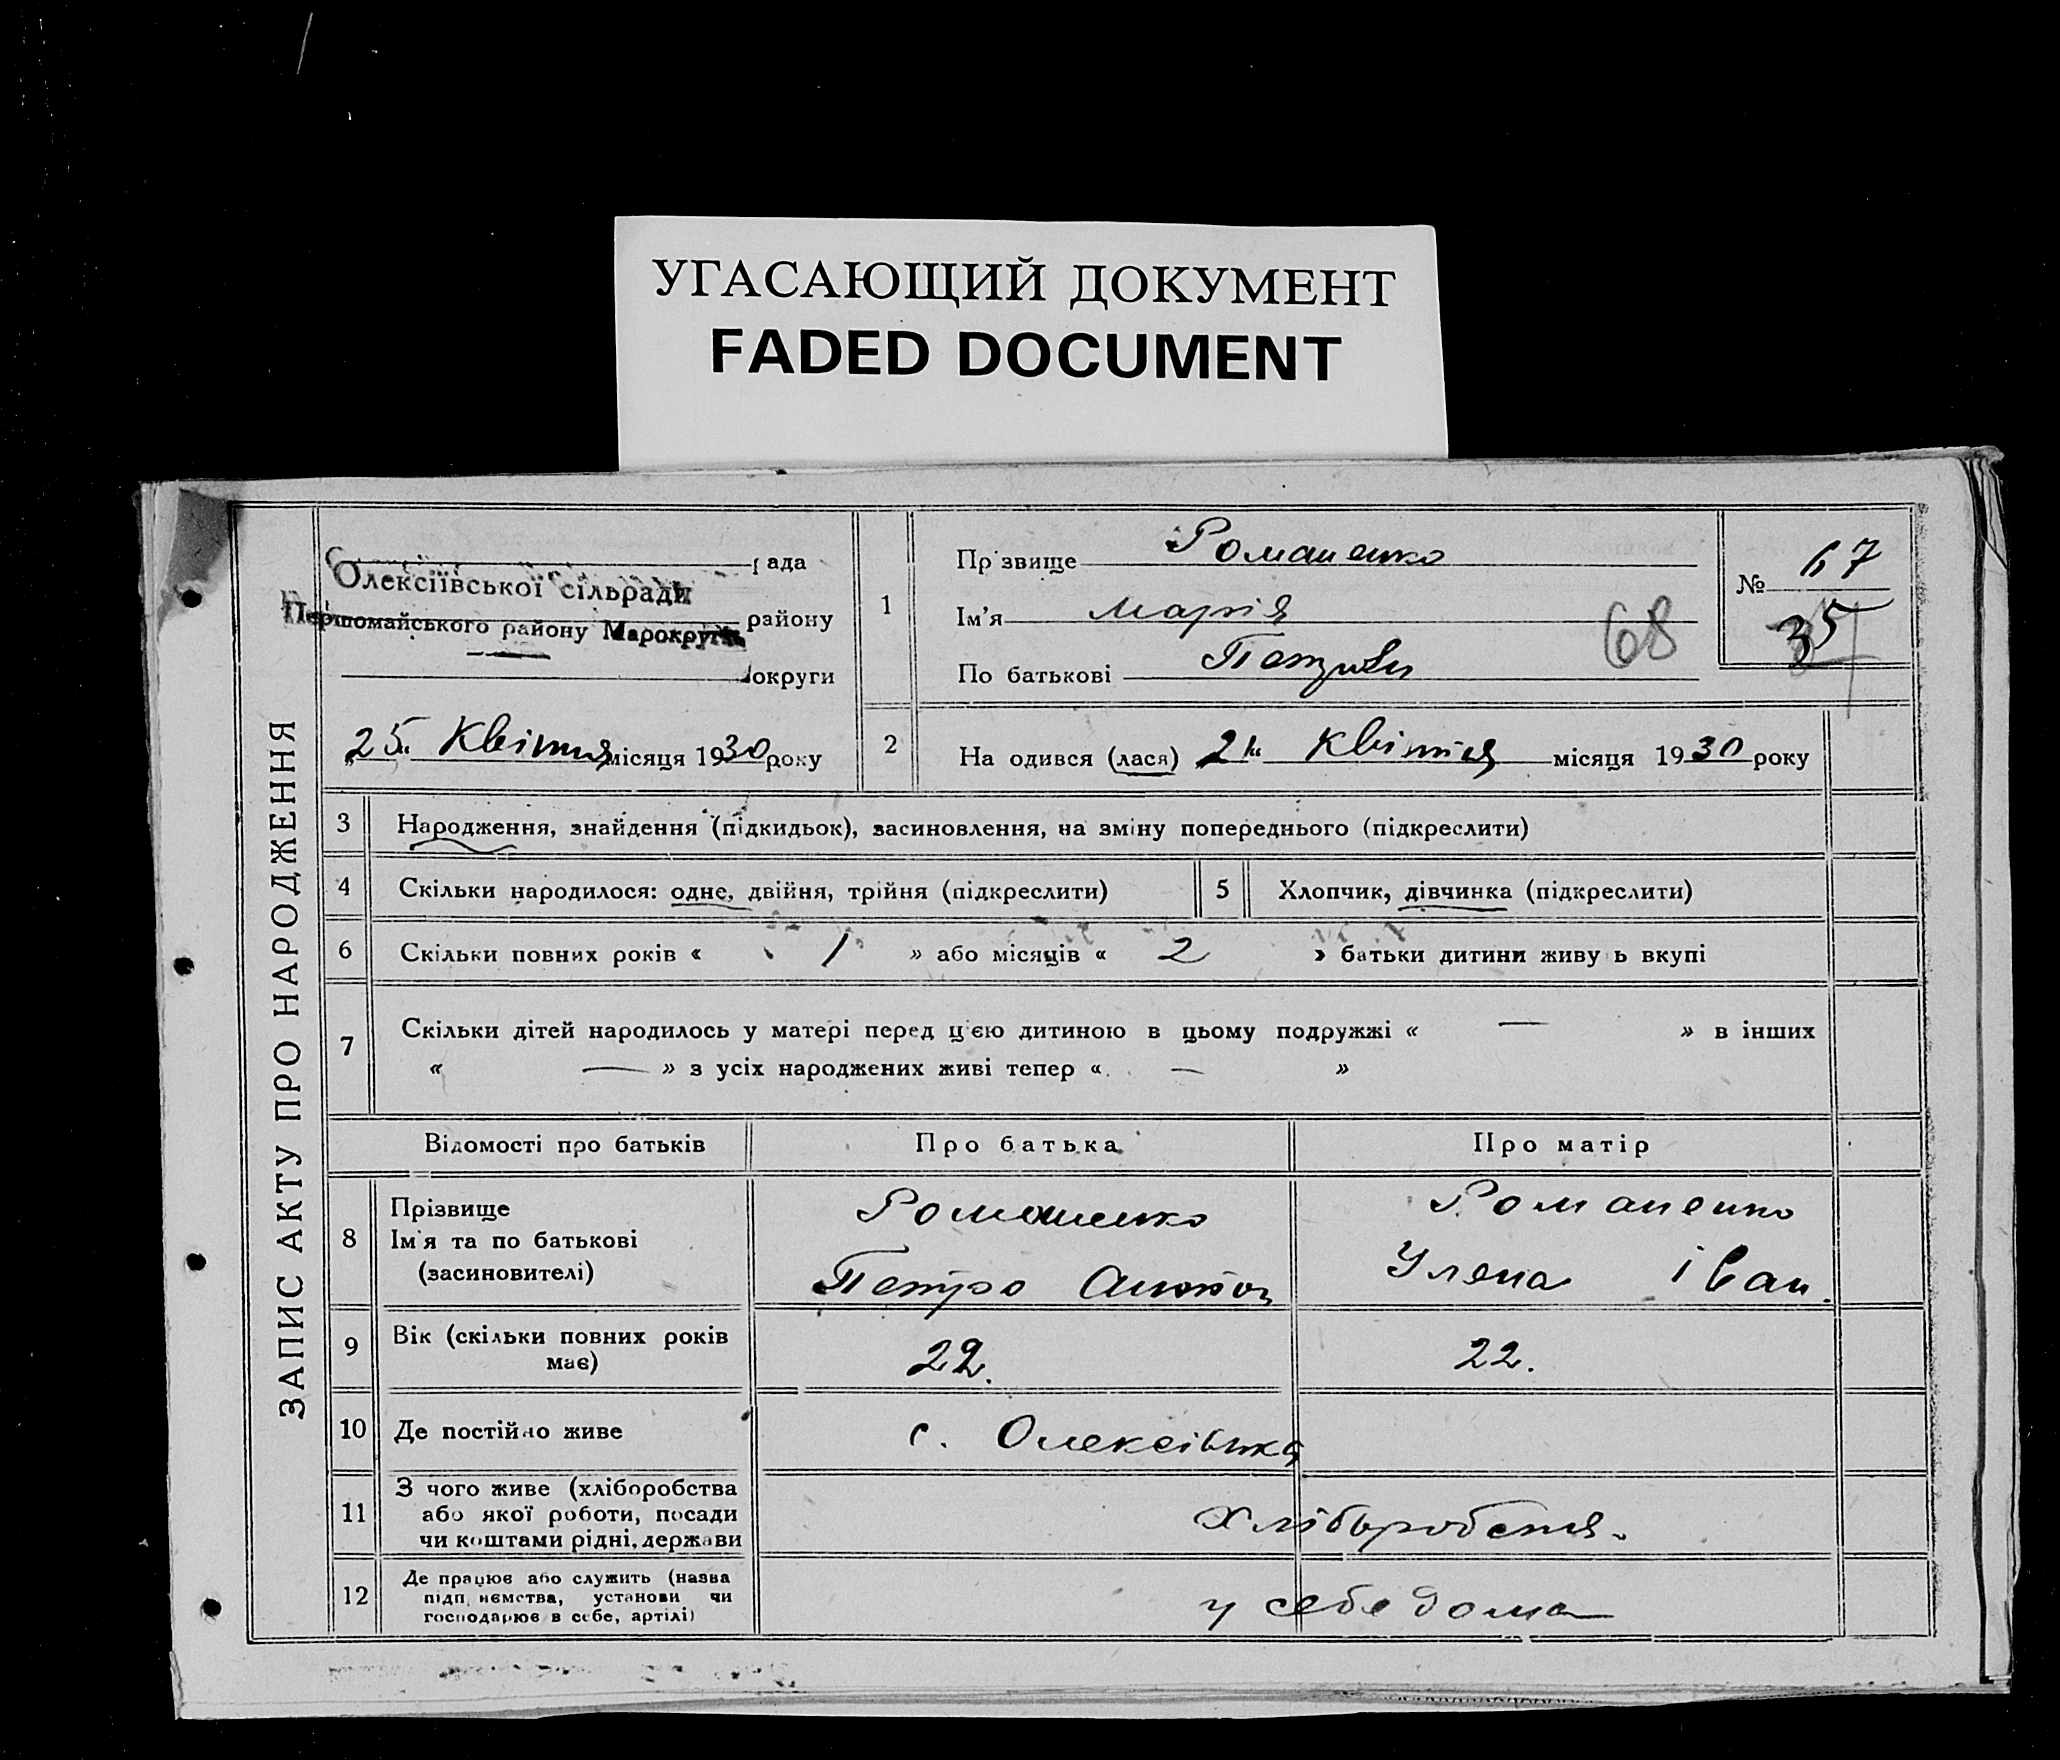 УГАСАЮЩИЙ ДОКУМЕНТ
FADED DOCUMENT
ЗАПИС АКТУ ПРО НАРОДЖЕННЯ
рада
Олексіївської сільради
Першомайського району Марокруги
району
округи
25 Квітня місяця 1930 року
1
Пр звище Романенко
Ім'я Марія
По батькові
68
№ 67
35
2
На одився (лася) Квітня місяця 1930 року
3 Народження, знайдення (підкидьок), засиновлення, на зміну попереднього (підкреслити)
4 Скільки народилося: одне, двійня, трійня (підкреслити)
5 Хлопчик, дівчинка (підкреслити)
6 Скільки повних років « 1 » або місяців « 2 » батьки дитини живу ь вкупі
7 Скільки дітей народилось у матері перед цією дитиною в цьому подружжі « — » в інших
« — » з усіх народжених живі тепер « — »
Відомості про батьків
Про батька
Про матір
8 Прізвище
Ім'я та по батькові
(засиновителі)
Романенко
Петро Антон
Романенко
Улена Іван.
9 Вік (скільки повних років
має)
22.
22.
10 Де постійно живе
с. Олексіївка
11 З чого живе (хліборобства
або якої роботи, посади
чи коштами рідні, держави
Хліборобства.
12 Де працює або служить (назва
підп иємства, установи чи
господарює в себе, артілі)
у себе дома